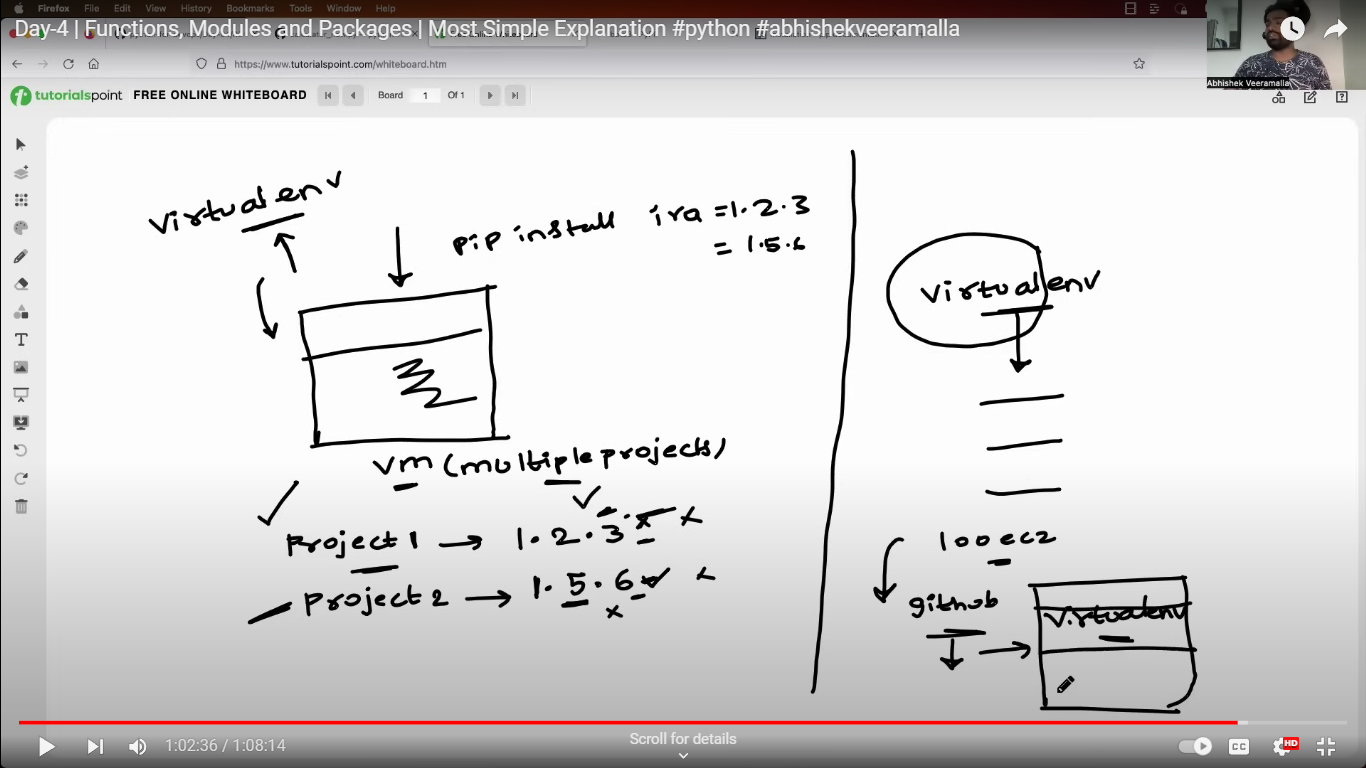 Firefox File Edit View History Bookmarks Tools Window Help
Day-4 | Functions, Modules and Packages | Most Simple Explanation #python #abhishekveeramalla
https://www.tutorialspoint.com/whiteboard.htm
Abhishek Veeramalla
tutorialspoint FREE ONLINE WHITEBOARD Board 1 Of 1
virtual env
pip install ira =1.2.3
= 1.5.6
virtual env
vm (multiple projects)
Project 1 → 1.2.3
Project 2 → 1.5.6
100 ec2
github
virtualenv
1:02:36 / 1:08:14
Scroll for details
CC
HD